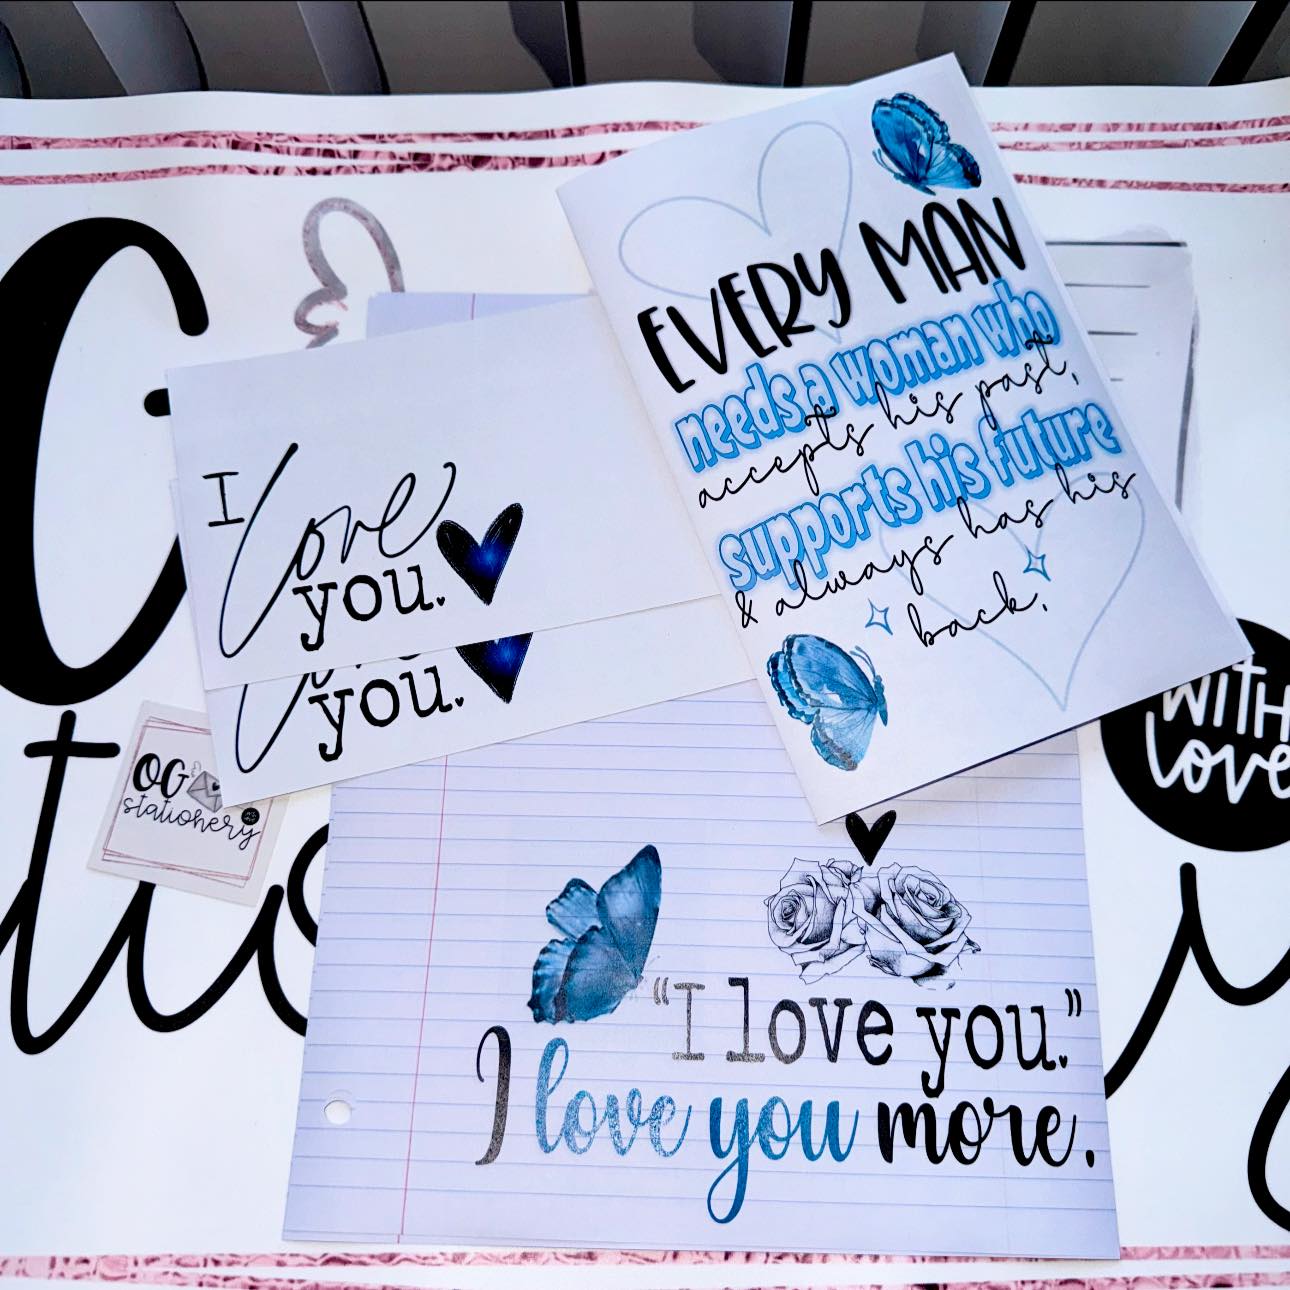 EVERY MAN
needs a woman who
accepts his past,
supports his future
& always has his
back.
I love
you.
you.
OG
stationery
WITH
love
"I love you."
I love you more.